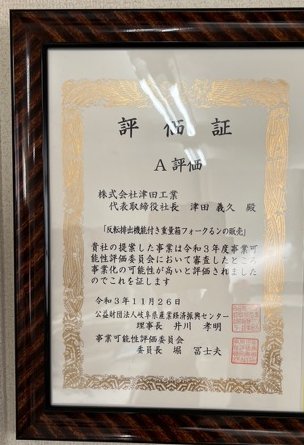 評価証
A評価
株式会社津田工業
代表取締役社長 津田 義久 殿
「反転排出機能付き重量箱フォークるンの販売」
貴社の提案した事業は令和3年度事業可
能性評価委員会において審査したところ
事業化の可能性が高いと評価されました
のでこれを証します
令和3年11月26日
公益財団法人岐阜県産業経済振興センター
理事長 井川 孝明
事業可能性評価委員会
委員長 堀 冨士夫